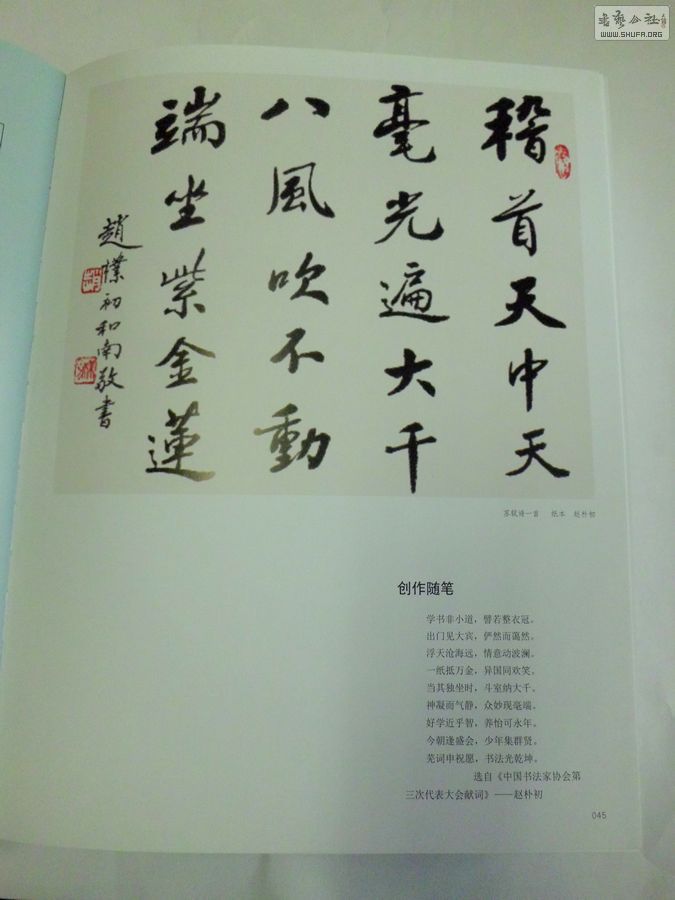 書藝公社
WWW.SHUFA.ORG
稽首天中天
毫光遍大千
八風吹不動
端坐紫金蓮
趙樸初和南敬書
苏轼诗一首 纸本 赵朴初
创作随笔
学书非小道，譬若整衣冠。
出门见大宾，俨然而蔼然。
浮天沧海远，情意动波澜。
一纸抵万金，异国同欢笑。
当其独坐时，斗室纳大千。
神凝而气静，众妙现毫端。
好学近乎智，养怡可永年。
今朝逢盛会，少年集群贤。
芜词申祝愿，书法光乾坤。
选自《中国书法家协会第
三次代表大会献词》——赵朴初
045